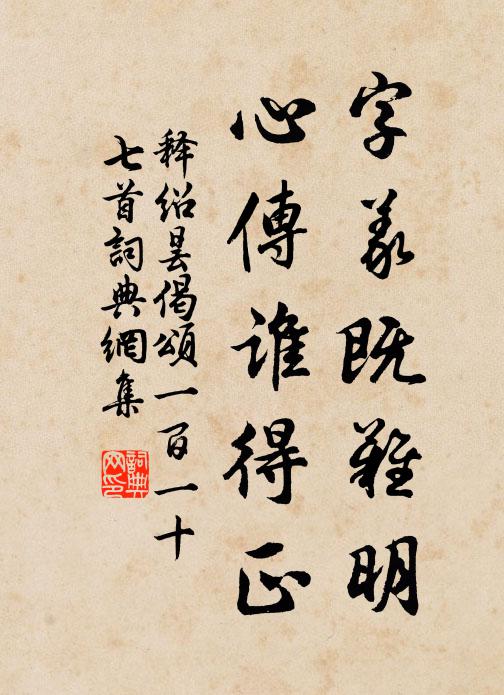 字義既難明
心傳誰得正
释紹曇偈頌一百一十
七首詞典網集
詞典
网印